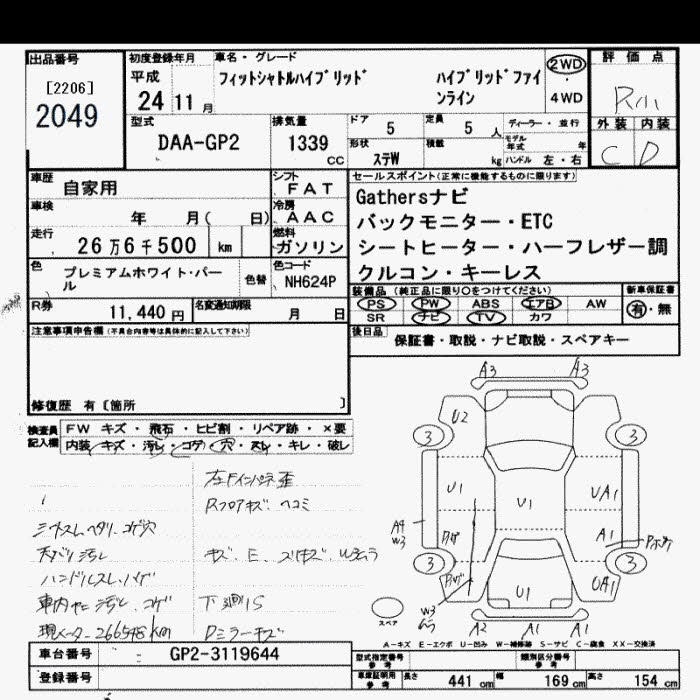 出品番号
[2206]
2049
初度登録年月
平成
24 11 月
車名・グレード
フィットシャトルハイブリッド
ハイブリッドファインライン
2WD
・
4WD
評価点
R/11
外装 内装
C D
型式
DAA-GP2
排気量
1339
cc
ドア
5
定員
5 人
形状
ステW
積載
kg
ディーラー・並行
モデル年式 年
ハンドル 左・右
車歴
自家用
シフト
FAT
車検
年 月( 日)
冷房
AAC
走行
26万6千500 km
燃料
ガソリン
色
プレミアムホワイト・パール
色替
色コード
NH624P
R券
11,440円
名変通知期限
月 日
セールスポイント(正常に機能するものに限ります)
Gathersナビ
バックモニター・ETC
シートヒーター・ハーフレザー調
クルコン・キーレス
装備品(純正品に限り○をつけてください)
PS PW ABS エアB AW
SR ナビ TV カワ
新車保証書
有・無
後日品
保証書・取説・ナビ取説・スペアキー
注意事項申告欄(不具合内容等は具体的に記入して下さい)
修復歴 有〔箇所 〕
検査員記入欄
FW キズ・飛石・ヒビ割・リペア跡・×要
内装 キズ・汚レ・コゲ・穴・スレ・キレ・破レ
左Fインパネ歪
Rフロアキズ ヘコミ
シートスレ.ヘタリ.コゲ穴
天バリ汚レ
キズ.E.スリキズ.Wムラ
ハンドルスレ.ハゲ
車内ヤニ汚レ.コゲ
下廻リS
現メーター266548km
Dミラーキズ
A3 A3
3 3
U2
U1 U1 UA1
A4
W3
A1
3 3
U1 UA1
W3
ムラ
A2 A1 A1
スペア
A－キズ E－エクボ U－凹み W－補修跡 S－サビ C－腐食 XX－交換済
車台番号
GP2-3119644
登録番号
型式指定番号
参考
類別区分番号
参考
車庫証明用
参考
長さ 441 cm 幅 169 cm 高さ 154 cm